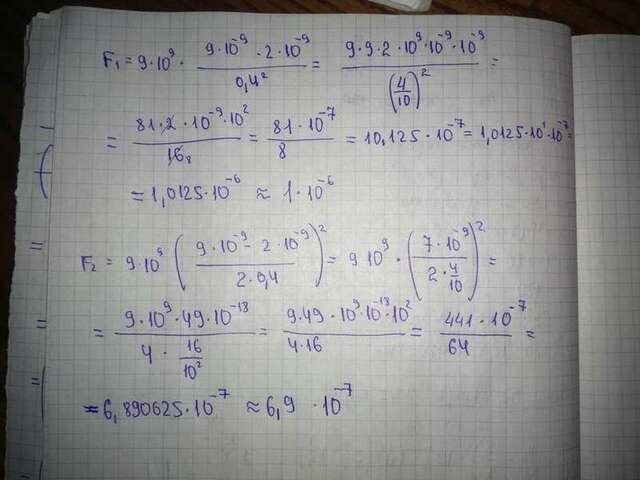 F₁ = 9·10⁹ · (9·10⁻⁹ · 2·10⁻⁹)/0,4² = (9·9·2·10⁹·10⁻⁹·10⁻⁹)/(4/10)² =
= (81·2·10⁻⁹·10²)/16₈ = (81·10⁻⁷)/8 = 10,125·10⁻⁷ = 1,0125·10¹·10⁻⁷ =
= 1,0125·10⁻⁶ ≈ 1·10⁻⁶
F₂ = 9·10⁹ ((9·10⁻⁹ - 2·10⁻⁹)/(2·0,4))² = 9·10⁹ · ((7·10⁻⁹)/(2·4/10))² =
= (9·10⁹·49·10⁻¹⁸)/(4·16/10²) = (9·49·10⁹·10⁻¹⁸·10²)/(4·16) = (441·10⁻⁷)/64 =
= 6,890625·10⁻⁷ ≈ 6,9 ·10⁻⁷